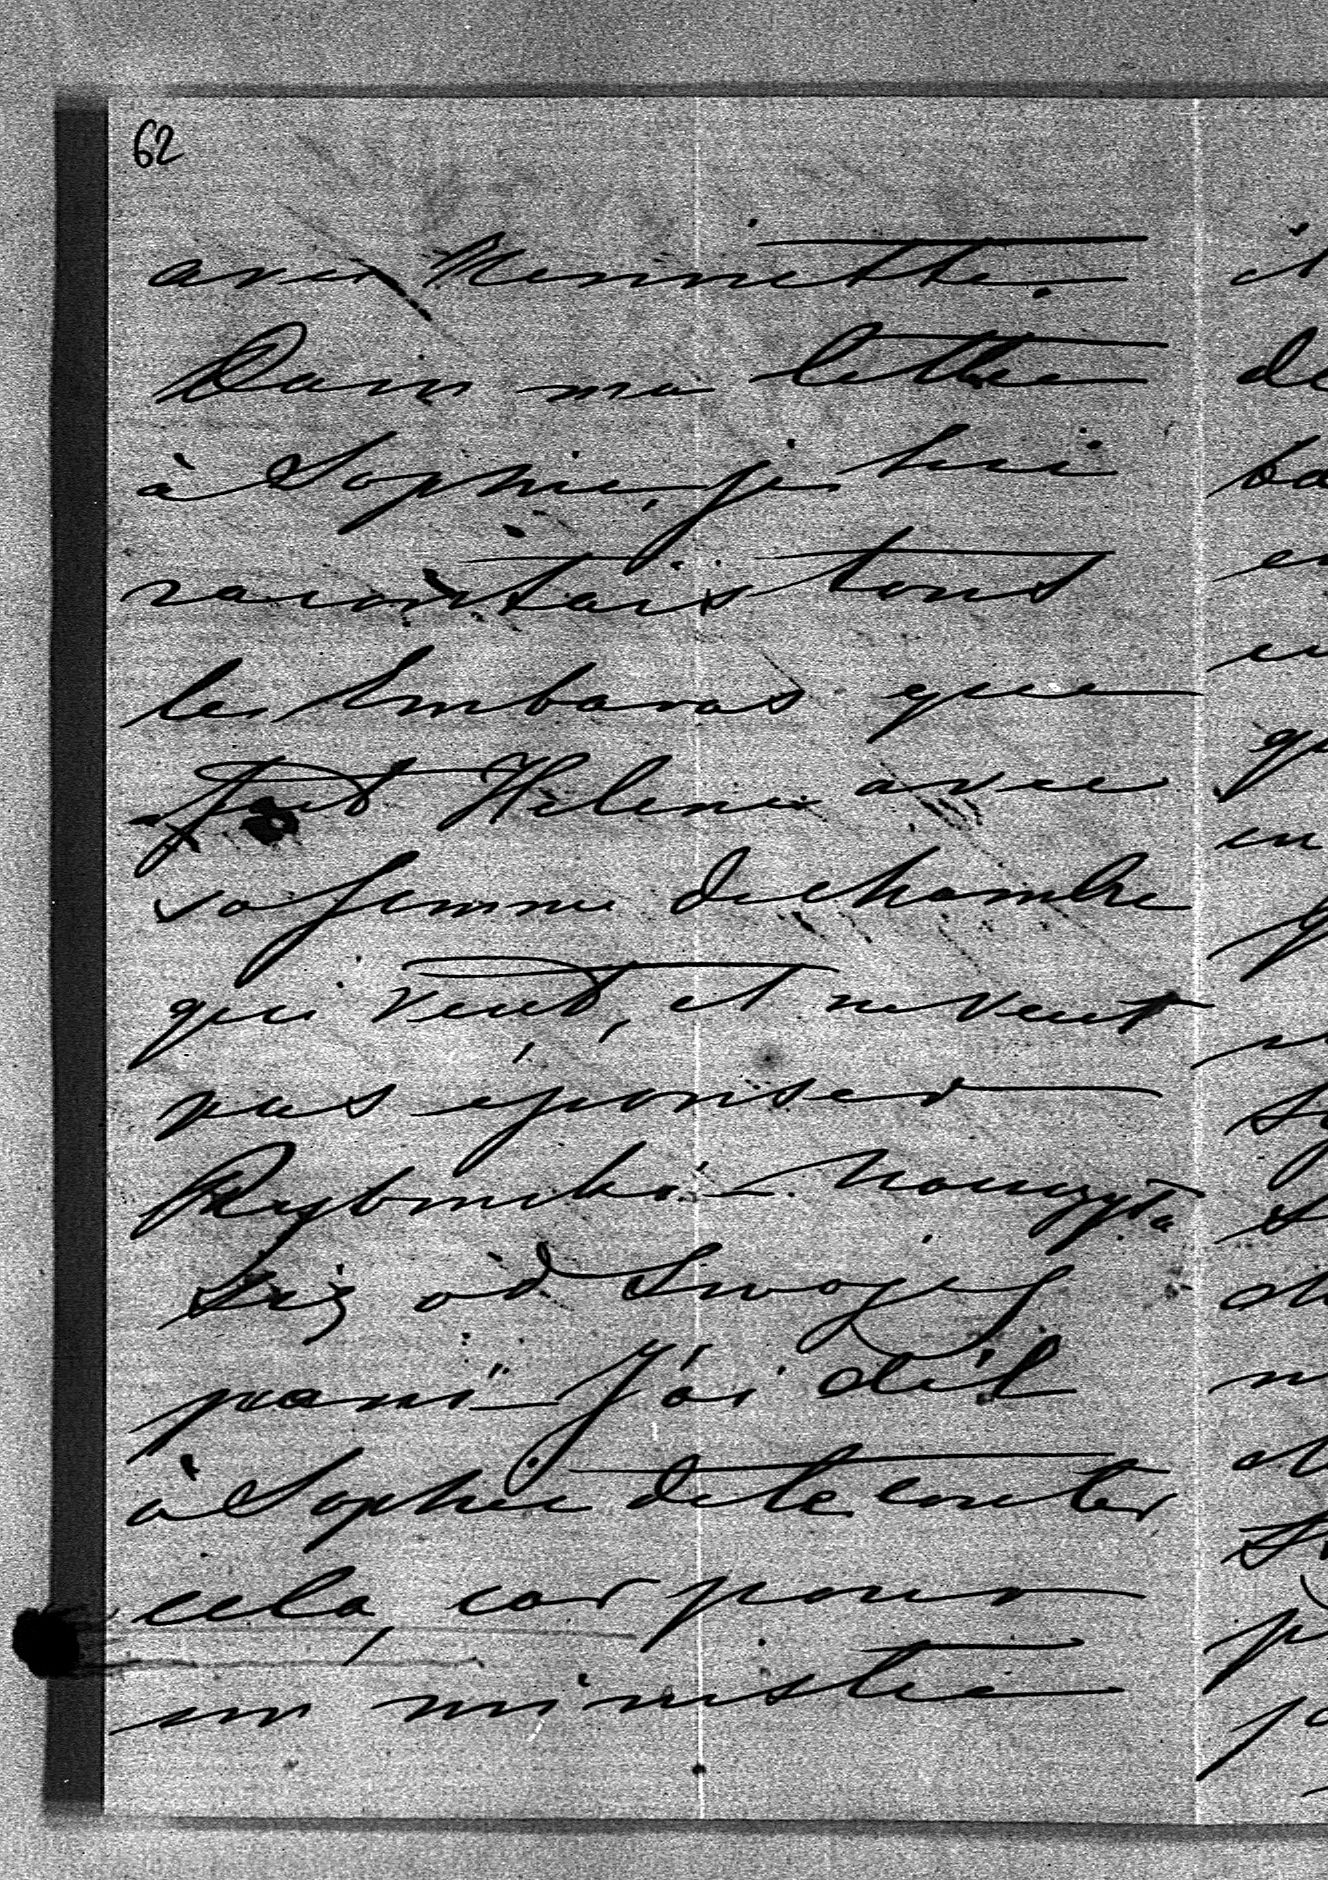 62
avec Mennitte.
Dans ma lettre
à Sophie, je lui
racontais tout
les embaras que
fait Hélène avec
sa femme de chambre
qui veut, et ne veut
pas épouser
Rybnicki
się od swojej
pani" J'ai dit
à Sophie de te conter
cela, car pour
un ministre